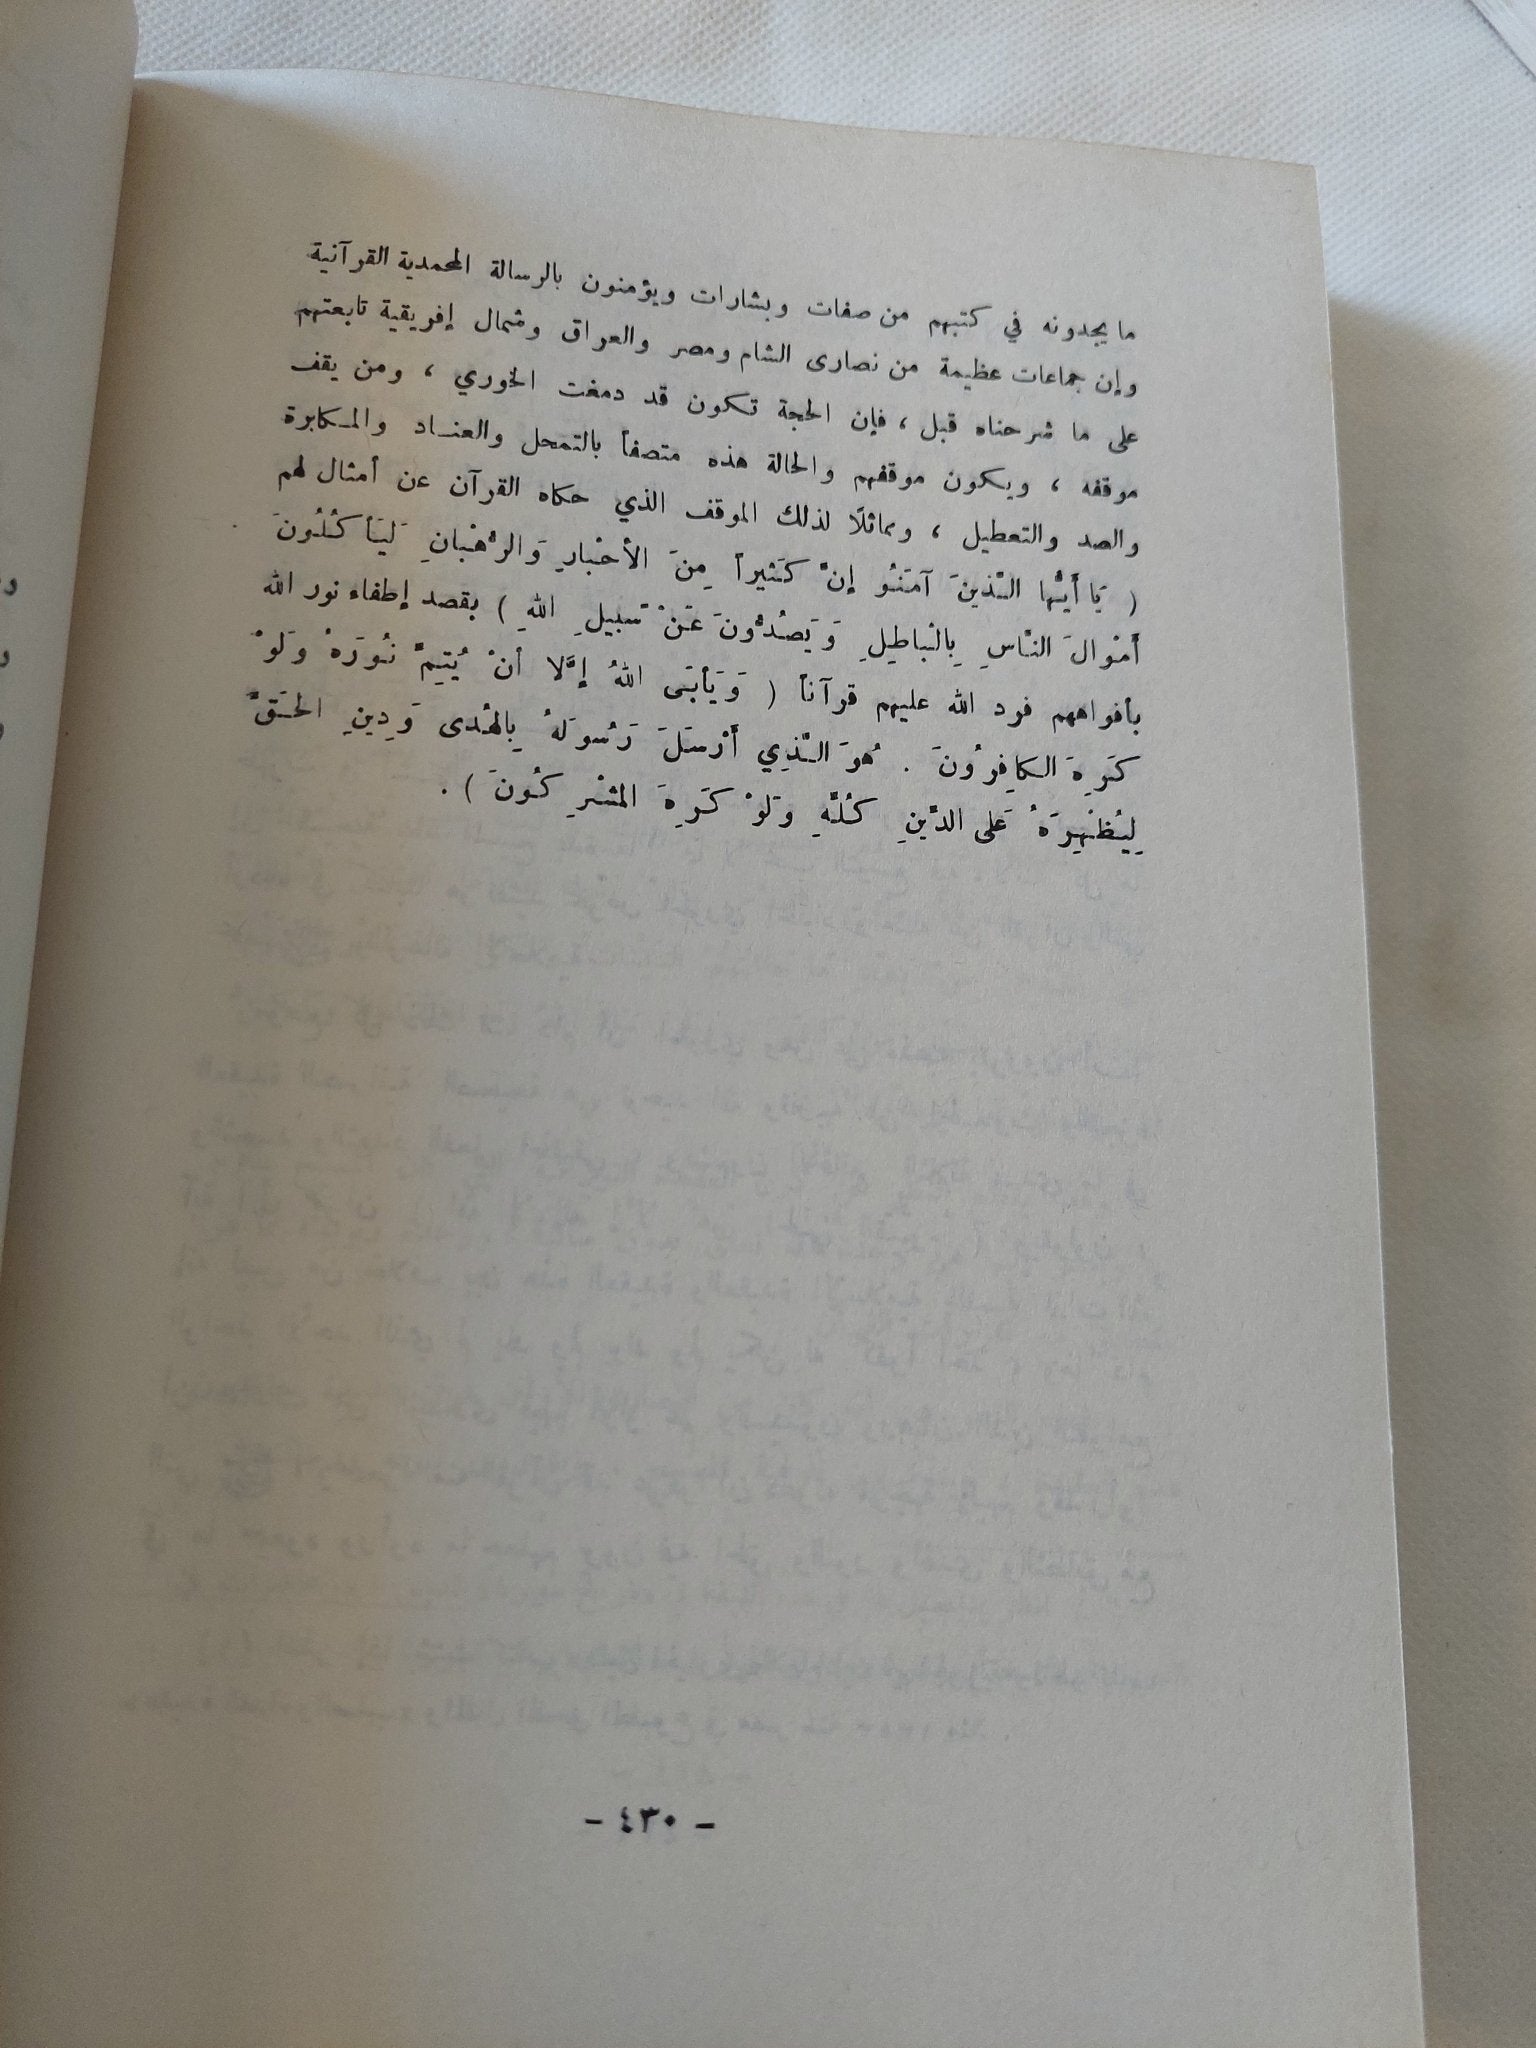 ما يجدونه في كتبهم من صفات وبشارات ويؤمنون بالرسالة المحمدية القرآنية
وإن جماعات عظيمة من نصارى الشام ومصر والعراق وشمال إفريقية تابعتهم
على ما شرحناه قبل ، فإن الحجة تكون قد دمغت الخوري ، ومن يقف
موقفه ، ويكون موقفهم والحالة هذه متصفاً بالتمحل والعناد والمكابرة
والصد والتعطيل ، ومماثلًا لذلك الموقف الذي حكاه القرآن عن أمثال لهم
( يَا أَيُّهَا الَّذِينَ آمَنُو إِنَّ كَثيراً مِنَ الأَحْبارِ وَالرُّهْبانِ لَيَأكُلُونَ
أَمْوالَ النَّاسِ بِالْباطِلِ وَيَصُدُّونَ عَنْ سَبيلِ اللهِ ) بقصد إطفاء نور الله
بأفواههم فرد الله عليهم قرآناً ( وَيَأبَى اللهُ إِلَّا أَنْ يُتِمَّ نُورَهُ وَلَوْ
كَرِهَ الكافِرُونَ . هُوَ الَّذِي أَرْسَلَ رَسُولَهُ بِالهُدى وَدِينِ الحَقِّ
لِيُظْهِرَهُ عَلى الدِّينِ كُلِّهِ وَلَوْ كَرِهَ المشْرِكُونَ ) .
- ٤٣٠ -